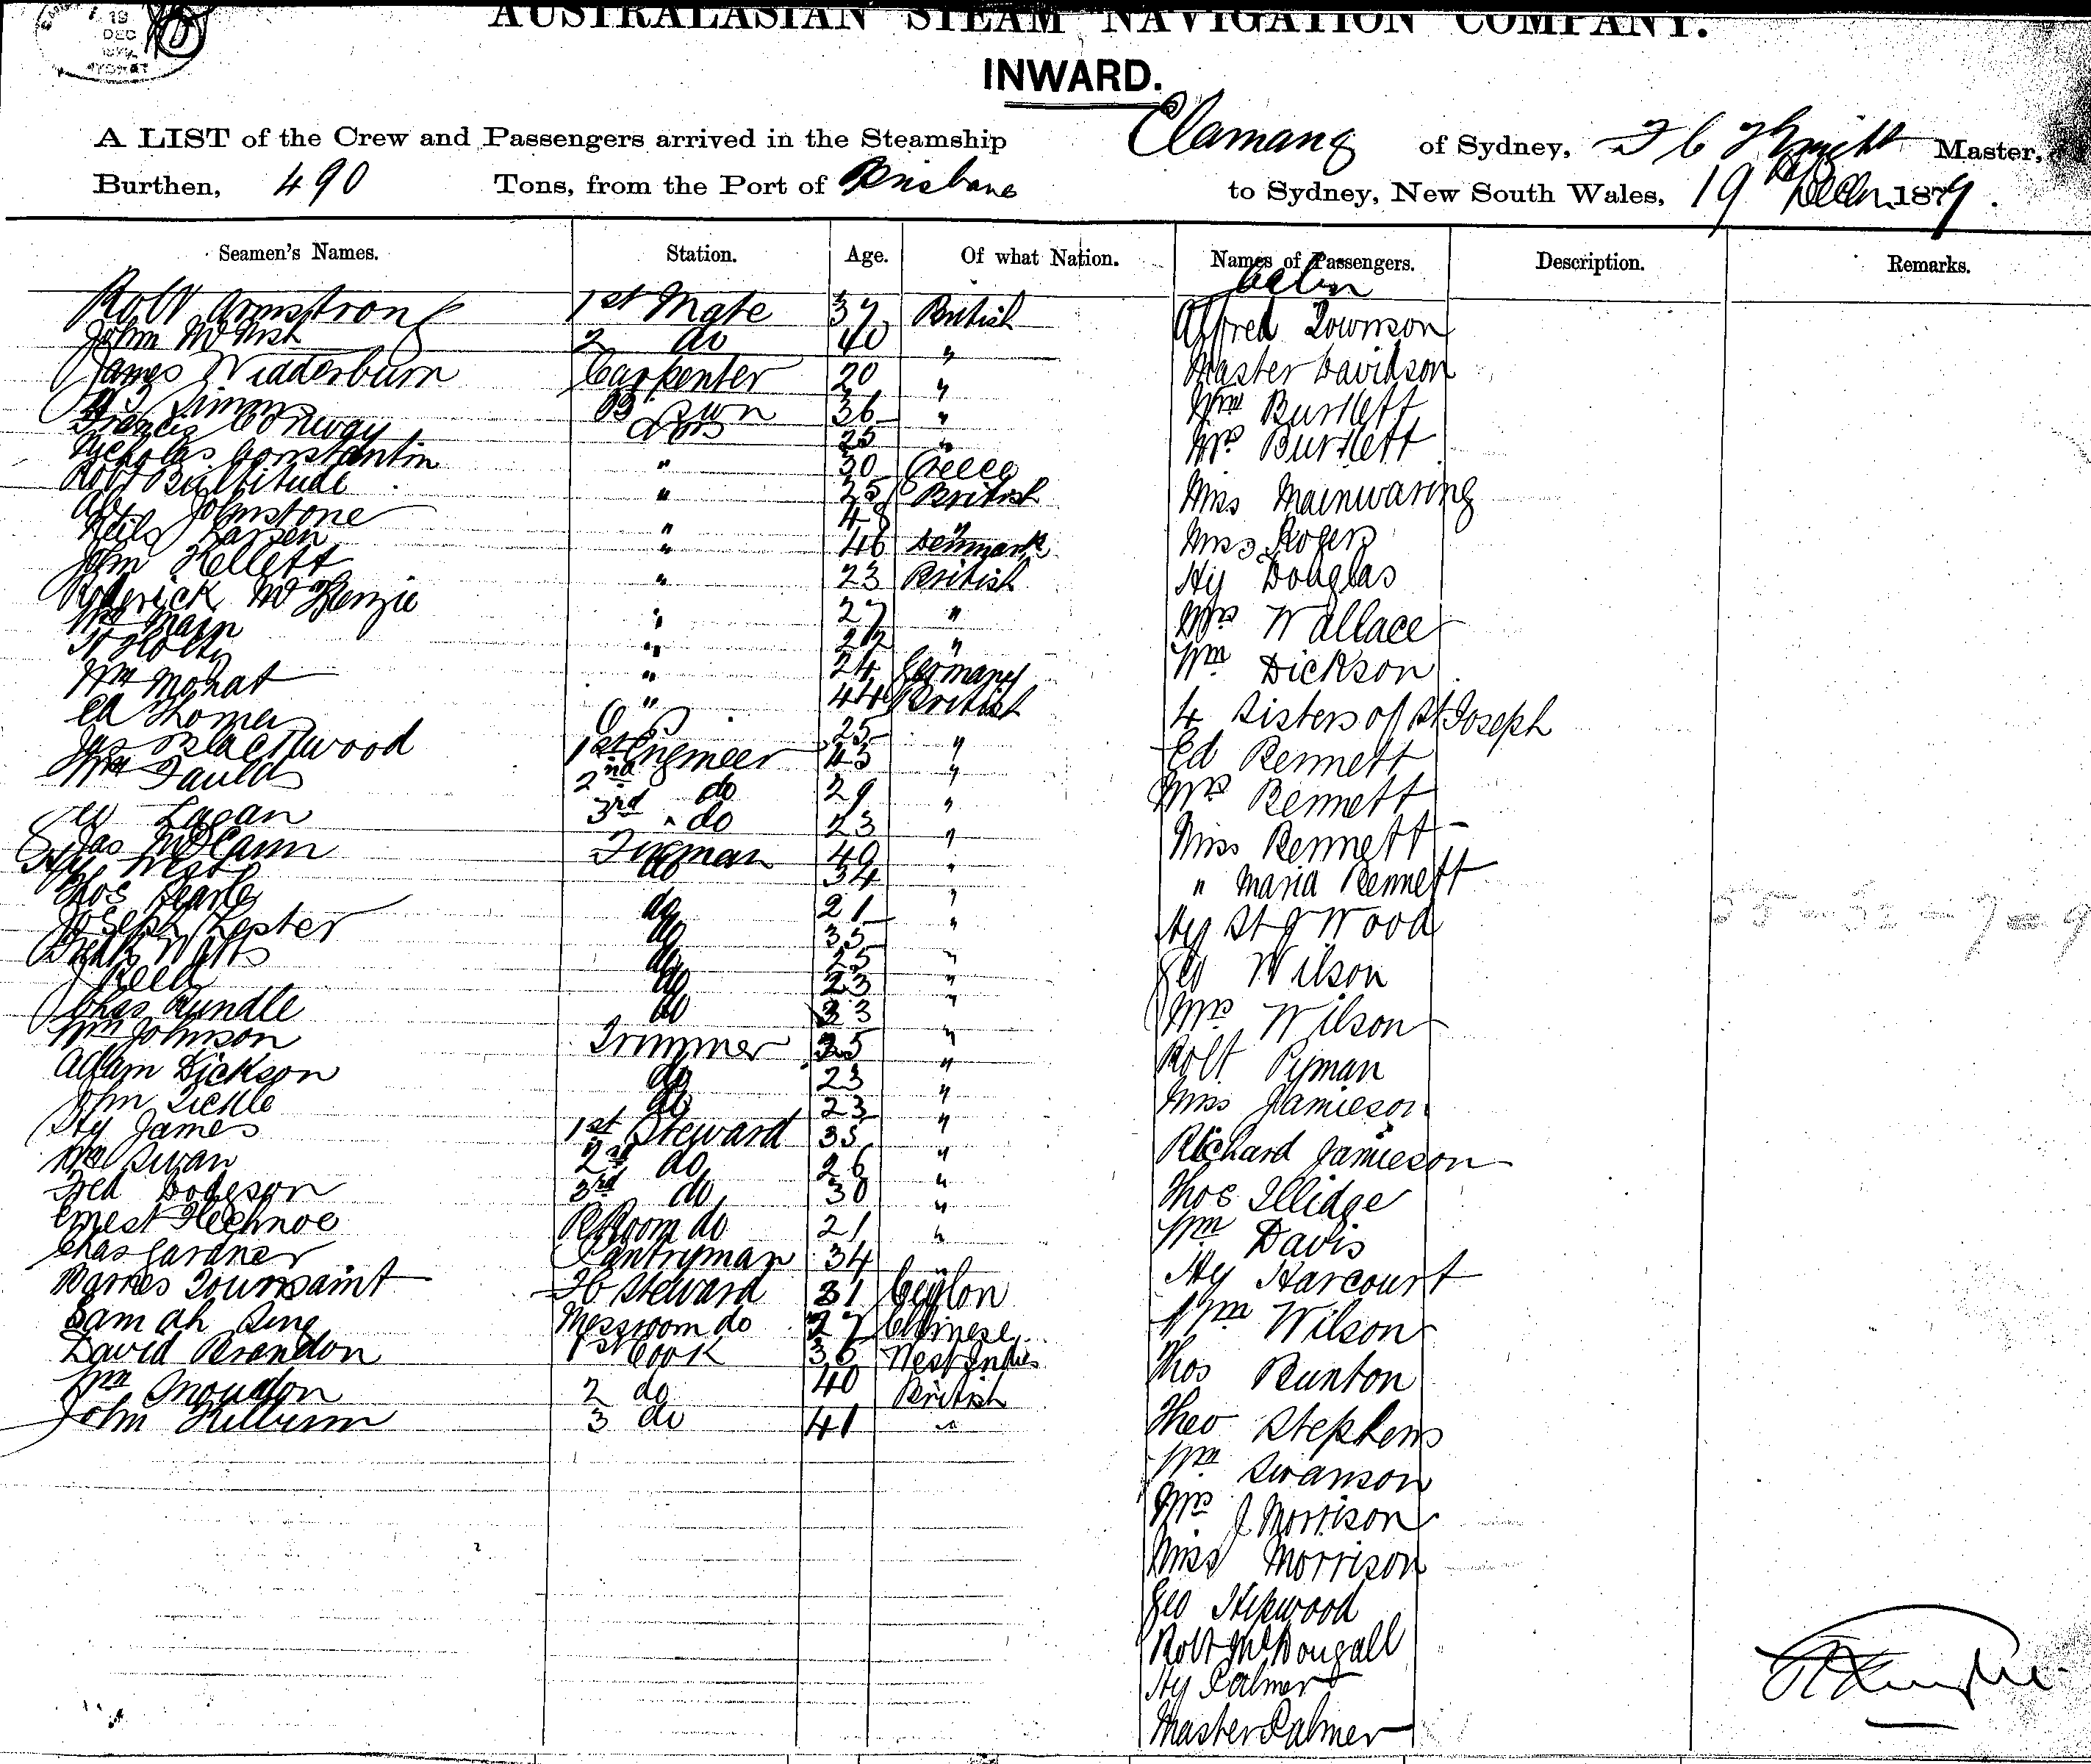 19
DEC
AUSTRALASIAN STEAM NAVIGATION COMPANY.
INWARD.
A LIST of the Crew and Passengers arrived in the Steamship Elamang of Sydney, Knight Master,
Burthen, 490 Tons, from the Port of Brisbane to Sydney, New South Wales, 19th Decr 1879.
Seamen's Names. Station. Age. Of what Nation. Names of Passengers. Description. Remarks.
Cabin
Robt Armstrong 1st Mate 37 British
John McNish 2 do 40 "
James Widderburn Carpenter 20 "
Simon B'swn 36 "
Francis Conway ABS 25 "
Nicholas Constantin " 30 Greece
Robt Bultitude " 25 British
Johnstone " 48 "
Neils Larsen " 46 Denmark
John Kellett " 23 British
Roderick McKenzie " 27 "
Wm Main " 22 "
H Holtz " 24 Germany
Wm Mohat " 44 British
Ed Thomas OS 25 "
Jas Blackwood 1st Engineer 43 "
Wm Fauld 2nd do 29 "
Lagan 3rd do 23 "
Jas McCann Fireman 49 "
Hy West do 34 "
Thos Searle do 21 "
Joseph Lester do 35 "
Watts do 25 "
J Reed do 23 "
Chas Rundle do 33 "
Wm Johnson Trimmer 25 "
Adam Dickson do 23 "
John Tickle do 23 "
Hy James 1st Steward 35 "
Wm Swan 2nd do 26 "
Fred Dodgson 3rd do 30 "
Ernest Flechnoe Room do 21 "
Chas Gardner Pantryman 34 "
Barnes Toussaint FC Steward 31 Ceylon
Sam Ah Sing Messroom do 27 Chinese
David Brandon 1st Cook 36 West Indies
Wm 2 do 40 British
John Kilburn 3 do 41 "
Alfred Townson
Master Davidson
Wm Burtlett
Mrs Burtlett
Miss Mainwaring
Miss Rogers
Hy Douglas
Mrs Wallace
Wm Dickson
4 Sisters of St Joseph
Ed Bennett
Mrs Bennett
Miss Bennett
" Maria Bennett
Hy St J Wood
Geo Wilson
Mrs Wilson
Robt Pyman
Miss Jamieson
Richard Jamieson
Thos Illidge
Wm Davis
Hy Harcourt
Wm Wilson
Thos Bunton
Theo Stephens
Wm Swanson
Mrs J Morrison
Miss Morrison
Geo Hepwood
Robt McDougall
Hy Palmer
Master Palmer